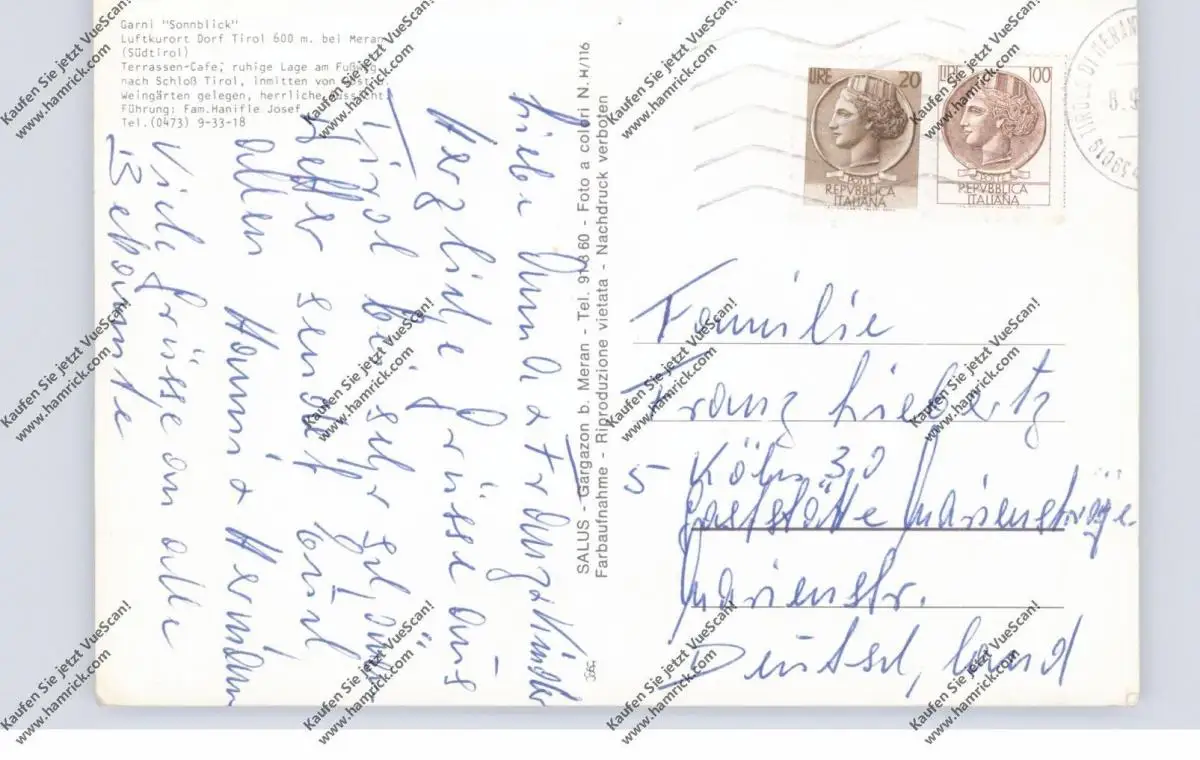 Garni "Sonnblick"
Luftkurort Dorf Tirol 600 m. bei Meran
(Südtirol)
Terrassen-Cafe, ruhige Lage am Fußweg
nach Schloß Tirol, inmitten von
Weingärten gelegen, herrliche Aussicht
Führung: Fam.Hanifle Josef
Tel.(0473) 9-33-18
Liebe Anni & Franz & Kinder
Herzliche Grüsse aus
Tirol bei sehr schönem
Wetter sendet euch
allen Hanni & Hermann
Viele Grüsse an alle
Bekannte
SALUS - Gargazon b. Meran - Tel. 91 8 60 - Foto a colori N. H/116
Farbaufnahme - Riproduzione vietata - Nachdruck verboten
LIRE 20
REPVBBLICA
ITALIANA
LIRE 100
REPVBBLICA
ITALIANA
39019 TIROLO DI MERANO
8.9
Familie
Franz Liebertz
5 Köln 30
Gaststätte Mariensträge
Marienstr.
Deutschland
Kaufen Sie jetzt VueScan!
www.hamrick.com